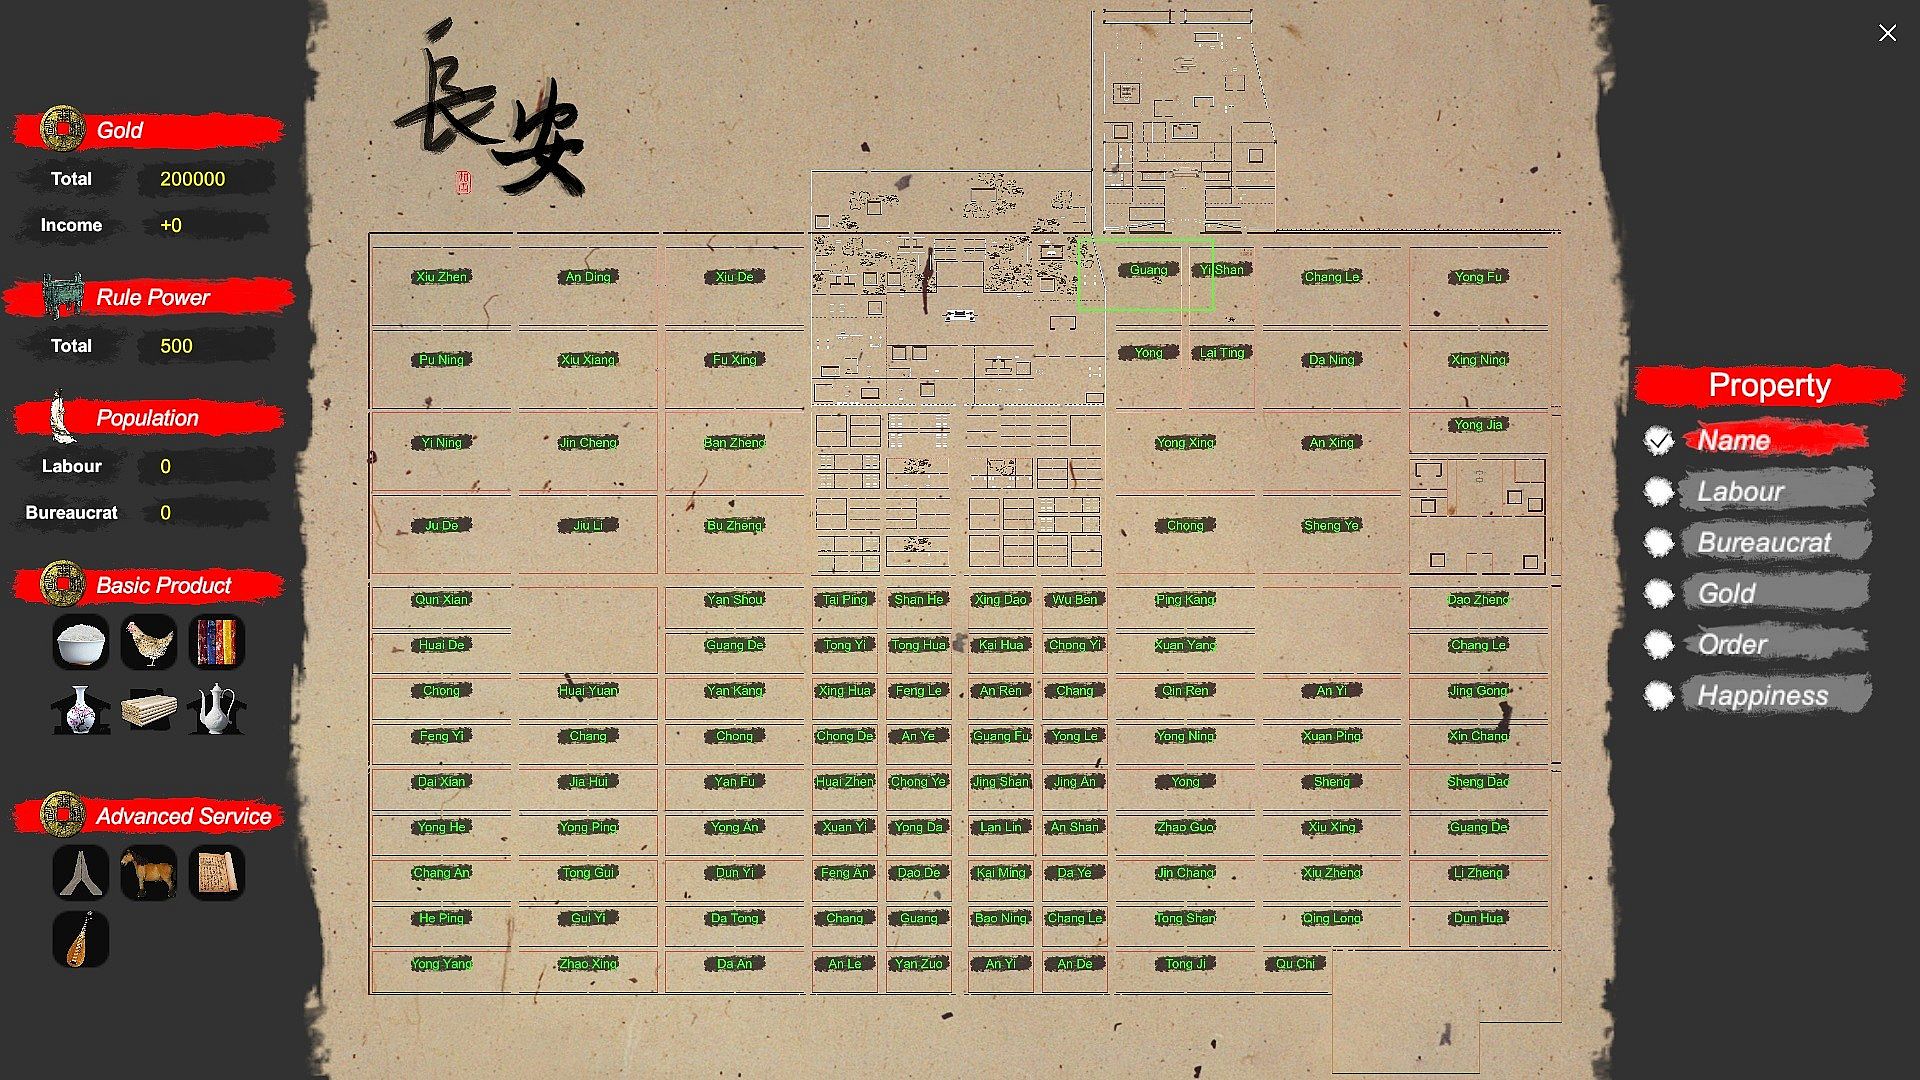 長安
Gold
Total 200000
Income +0
Rule Power
Total 500
Population
Labour 0
Bureaucrat 0
Basic Product
Advanced Service
Xiu Zhen An Ding Xiu De Guang Yi Shan Chang Le Yong Fu
Pu Ning Xiu Xiang Fu Xing Yong Lai Ting Da Ning Xing Ning
Yong Jia
Yi Ning Jin Cheng Ban Zheng Yong Xing An Xing
Ju De Jiu Li Bu Zheng Chong Sheng Ye
Qun Xian Yan Shou Tai Ping Shan He Xing Dao Wu Ben Ping Kang Dao Zheng
Huai De Guang De Tong Yi Tong Hua Kai Hua Chong Yi Xuan Yang Chang Le
Chong Huai Yuan Yan Kang Xing Hua Feng Le An Ren Chang Qin Ren An Yi Jing Gong
Feng Yi Chang Chong Chong De An Ye Guang Fu Yong Le Yong Ning Xuan Ping Xin Chang
Dai Xian Jia Hui Yan Fu Huai Zhen Chong Ye Jing Shan Jing An Yong Sheng Sheng Dao
Yong He Yong Ping Yong An Xuan Yi Yong Da Lan Lin An Shan Zhao Guo Xiu Xing Guang De
Chang An Tong Gui Dun Yi Feng An Dao De Kai Ming Da Ye Jin Chang Xiu Zheng Li Zheng
He Ping Gui Yi Da Tong Chang Guang Bao Ning Chang Le Tong Shan Qing Long Dun Hua
Yong Yang Zhao Xing Da An An Le Yan Zuo An Yi An De Tong Ji Qu Chi
Property
Name
Labour
Bureaucrat
Gold
Order
Happiness